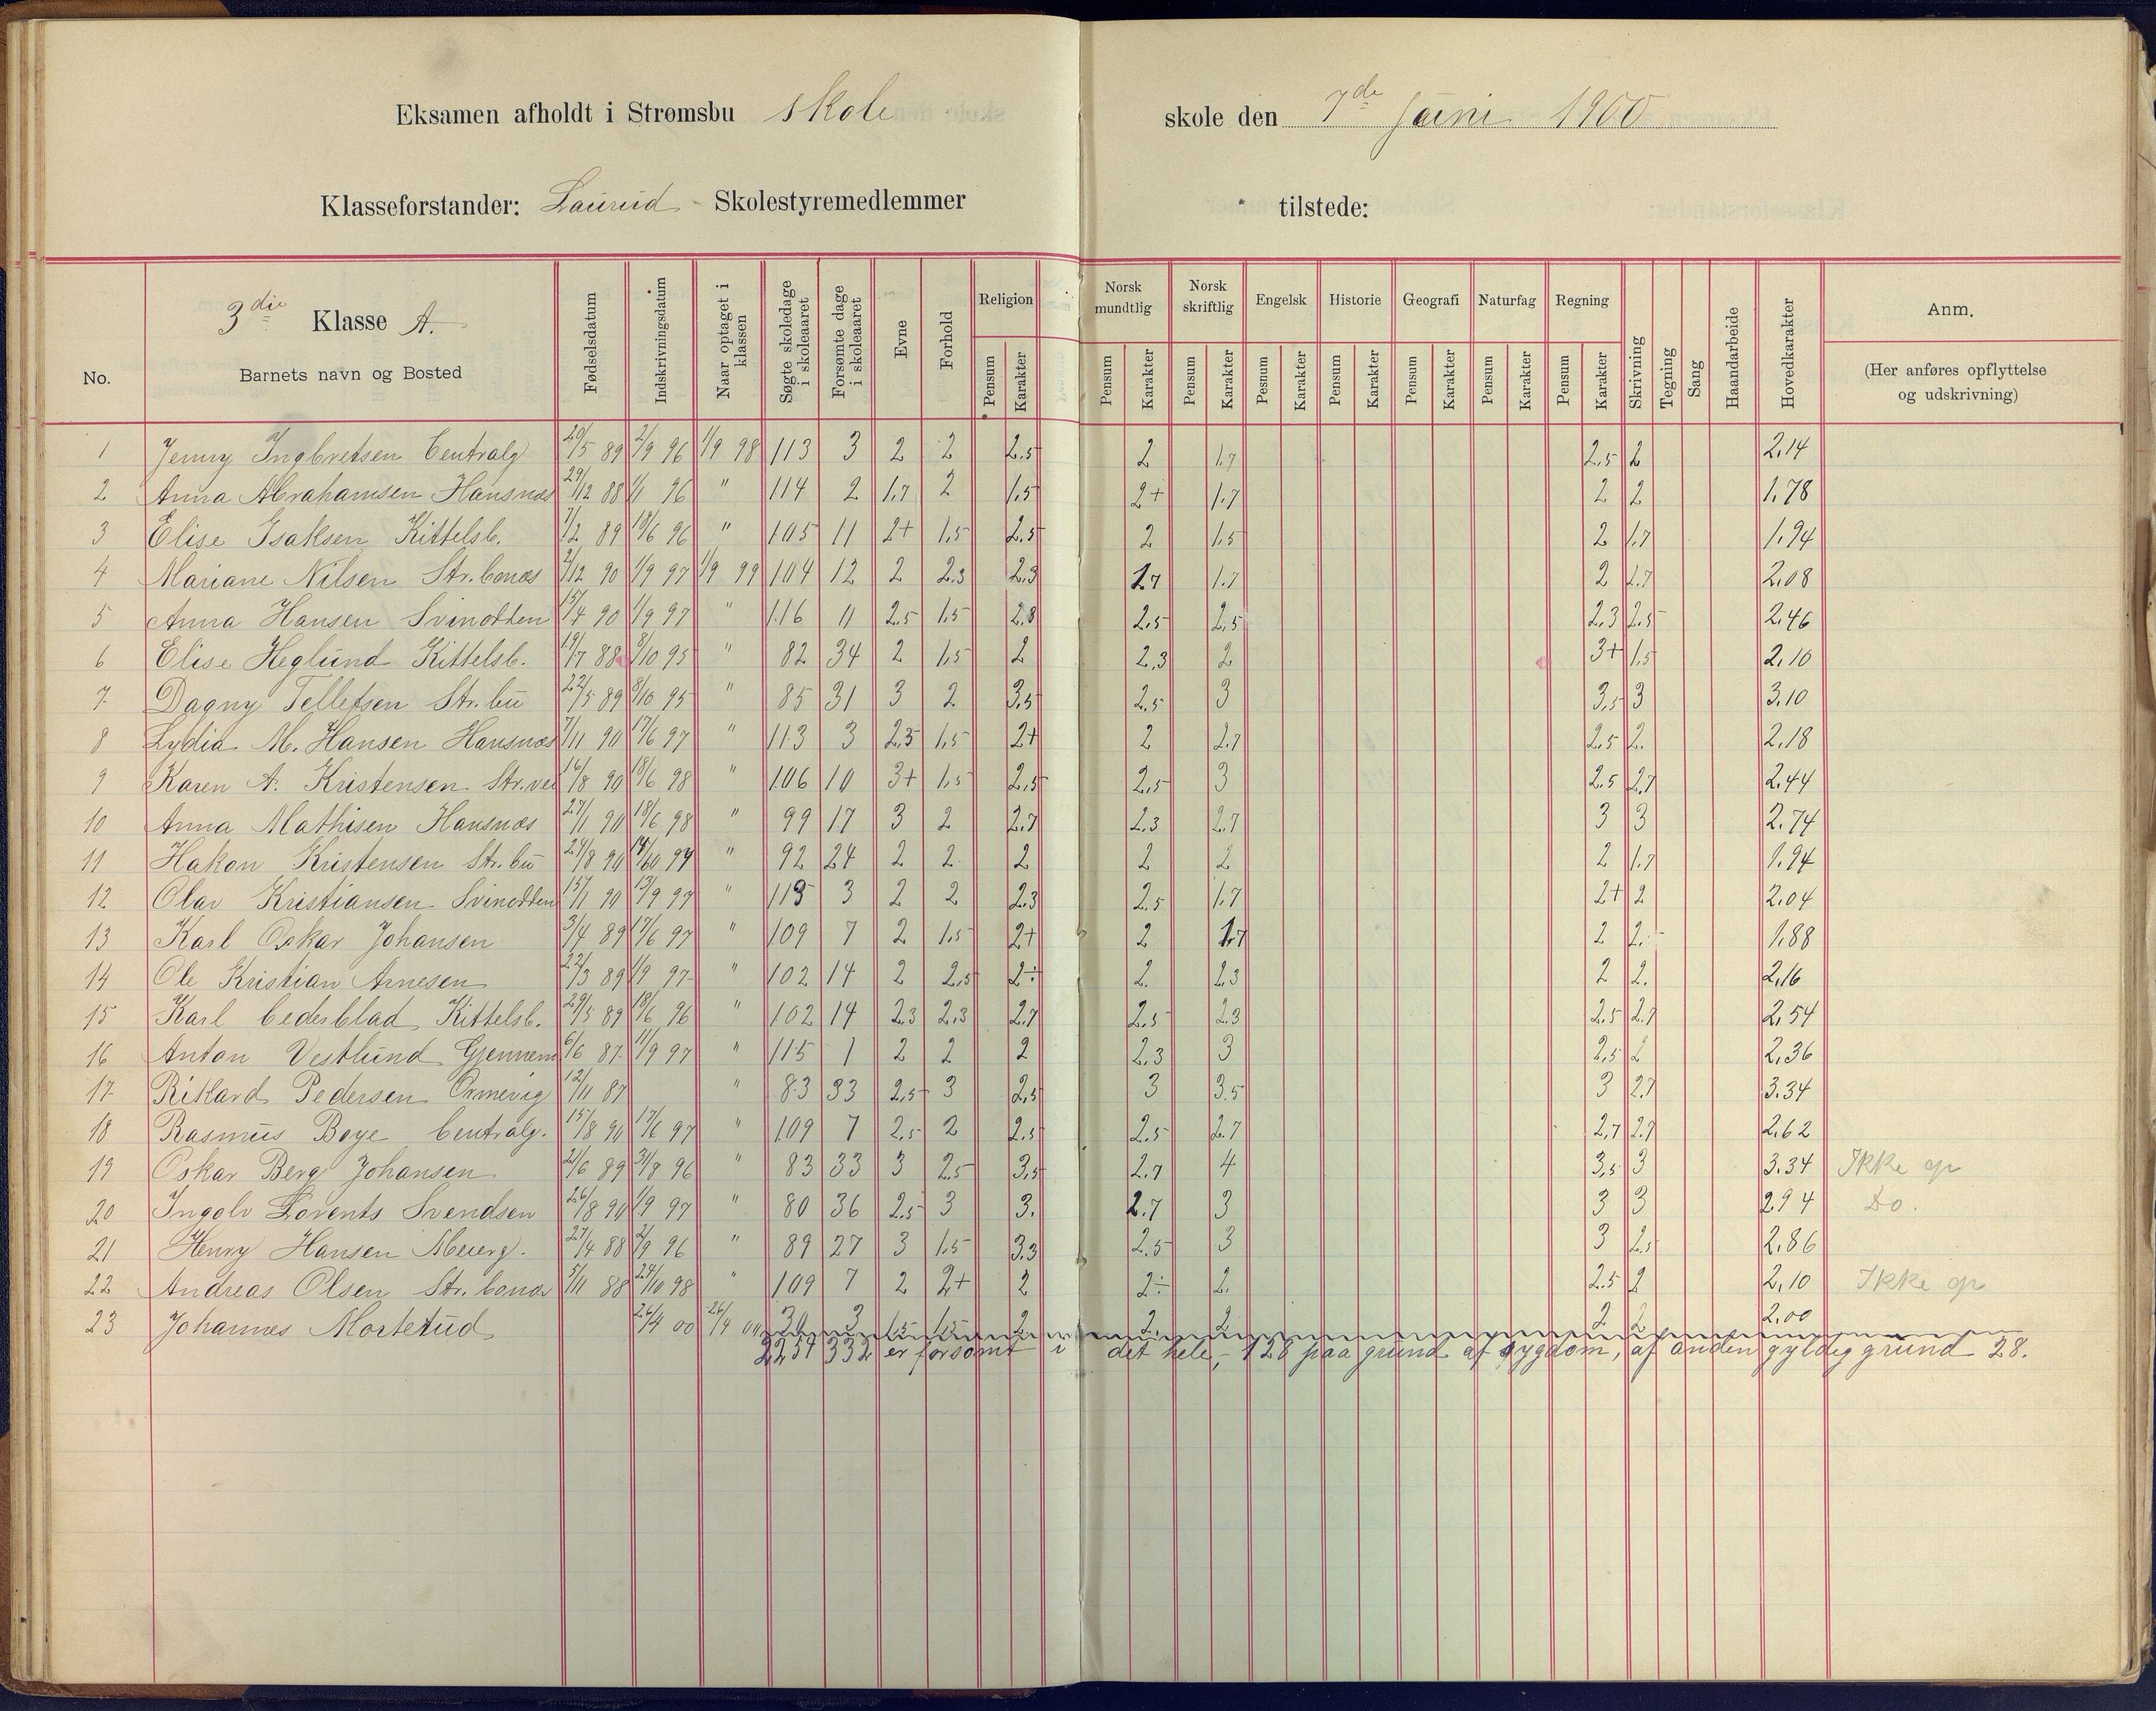 Eksamen afholdt i Strømsbu skole skole den 7de Juni 1900
Klasseforstander: Skolestyremedlemmer tilstede:
No. 3die Klasse A. Barnets navn og Bosted Fødselsdatum Indskrivningsdatum Naar optaget i klassen Søgte skoledage i skoleaaret Forsømte dage i skoleaaret Evne Forhold Religion Pensum Karakter Norsk mundtlig Pensum Karakter Norsk skriftlig Pensum Karakter Engelsk Pesnum Karakter Historie Pensum Karakter Geografi Pensum Karakter Naturfag Pensum Karakter Regning Pensum Karakter Skrivning Tegning Sang Haandarbeide Hovedkarakter Anm. (Her anføres opflyttelse og udskrivning)
1 Jenny Ingbretsen Centralg 20/5 89 2/9 96 1/9 98 113 3 2 2 2.5 2 1.7 2.5 2 2,14
2 Anna Abrahamsen Hansnæs 29/12 88 1/1 96 " 114 2 1,7 2 1,5 2+ 1.7 2 2 1,78
3 Elise Isaksen Kittelsb. 7/2 89 18/6 96 " 105 11 2+ 1,5 2.5 2 1.5 2 1.7 1.94
4 Mariane Nilsen Str. bonæs 2/12 90 1/9 97 1/9 99 104 12 2 2.3 2.3 1.7 1.7 2 2.7 2,08
5 Anna Hansen Svinodden 15/4 90 1/9 97 " 116 11 2.5 1.5 2,8 2,5 2,5 2,3 2.5 2,46
6 Elise Heglund Kittelsb. 19/7 88 8/10 95 " 82 34 2 1,5 2 2,3 2 3+ 1.5 2,10
7 Dagny Tellefsen Str. bu 22/5 89 8/10 95 " 85 31 3 2 3,5 2.5 3 3,5 3 3.10
8 Lydia M. Hansen Hansnæs 7/11 90 17/6 97 " 113 3 2,3 1,5 2+ 2 2.7 2,5 2. 2,18
9 Karen A. Kristensen Str. vei 16/8 90 18/6 98 " 106 10 3+ 1,5 2,5 2,5 3 2.5 2.7 2.44
10 Anna Mathisen Hansnæs 27/1 90 18/6 98 " 99 17 3 2 2.7 2.3 2.7 3 3 2.74
11 Hakon Kristensen Str. bu 24/8 90 " 92 24 2 2 2 2 2 2 1.7 1.94
12 Olav Kristiansen Svinodden 15/1 90 13/9 97 " 113 3 2 2 2.3 2.5 1.7 2+ 2 2.04
13 Karl Oskar Johansen 3/4 89 17/6 97 " 109 7 2 1.5 2+ 2 1.7 2 2. 1.88
14 Ole Kristian Arnesen 22/3 89 1/9 97 " 102 14 2 2,5 2÷ 2. 2,3 2 2. 2,16
15 Karl Cederblad Kittelsb. 29/5 89 18/6 96 " 102 14 2.3 2.3 2.7 2.5 2.3 2.5 2.7 2,54
16 Anton Vestlund Gjennem 6/6 87 11/9 97 " 115 1 2 2 2 2,3 3 2,5 2 2,36
17 Rikard Pedersen Ormevig 12/11 87 " 83 33 2,5 3 2,5 3 3.5 3 2.7 3.34
18 Rasmus Boye Centralg. 15/8 90 17/6 97 " 109 7 2.5 2 2.5 2.5 2.7 2,7 2.7 2.62
19 Oskar Berg Johansen 21/6 89 31/8 96 " 83 33 3 2.5 3,5 2.7 4 3,5 3 3.34 Ikke op
20 Ingolv Lovents Svendsen 26/8 90 1/9 97 " 80 36 2.5 3 3. 2.7 3 3 3 2.94 Do.
21 Henry Hansen 27/4 88 2/9 96 " 89 27 3 1.5 3.3 2.5 3 3 2.5 2.86
22 Andreas Olsen Str. bonæs 5/11 88 24/10 98 " 109 7 2 2+ 2 2÷ 2. 2.5 2 2,10 Ikke op
23 Johannes Mortetud 26/4 00 26/4 00 30 3 1,5 1,5 2 2. 2 2 2 2.00
332 er forsømt i det hele, - 128 paa grund af sygdom, af anden gyldig grund 28.